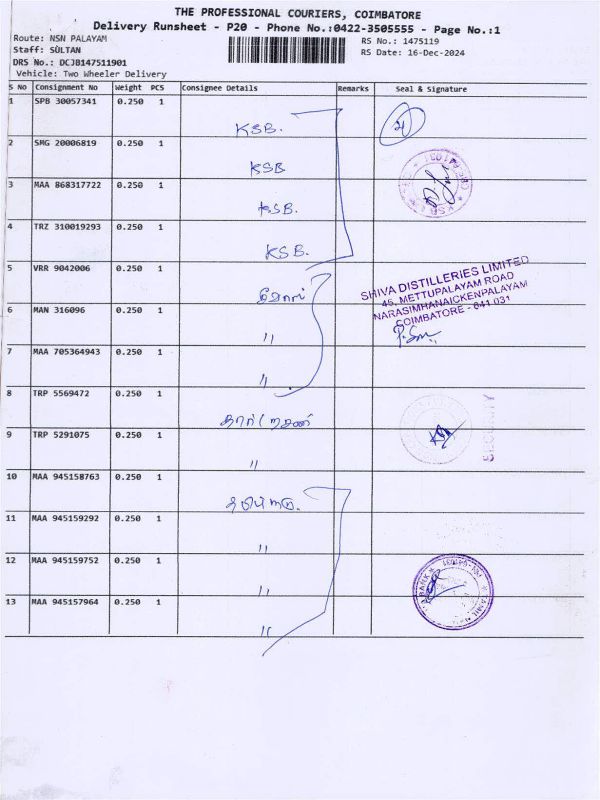 THE PROFESSIONAL COURIERS, COIMBATORE
Delivery Runsheet - P20 - Phone No.:0422-3505555 - Page No.:1
Route: NSN PALAYAM
RS No.: 1475119
Staff: SULTAN
RS Date: 16-Dec-2024
DRS No.: DCJB147511901
Vehicle: Two Wheeler Delivery
S No Consignment No Weight PCS Consignee Details Remarks Seal & Signature
1 SPB 30057341 0.250 1 KSB.
2 SMG 20006819 0.250 1 KSB
3 MAA 868317722 0.250 1 KSB.
4 TRZ 310019293 0.250 1 KSB.
5 VRR 9042006 0.250 1
SHIVA DISTILLERIES LIMITED
45, METTUPALAYAM ROAD
NARASIMHANAICKENPALAYAM
COIMBATORE - 641 031
6 MAN 316096 0.250 1 "
7 MAA 705364943 0.250 1 "
8 TRP 5569472 0.250 1
SECURITY
9 TRP 5291075 0.250 1 "
10 MAA 945158763 0.250 1
11 MAA 945159292 0.250 1 "
12 MAA 945159752 0.250 1 "
13 MAA 945157964 0.250 1 "